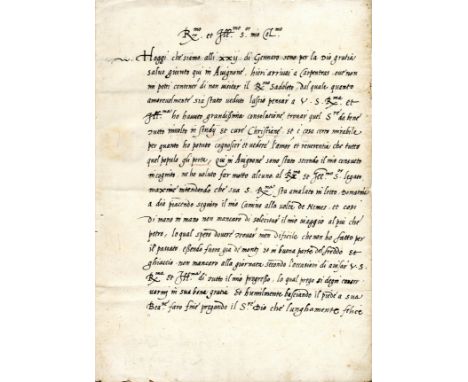 R.mo et Ill.mo S.or mio Col.mo
Hoggi che siamo alli xxij di Gennaro sono per la Dio gratia
salvo giunto qui in Avignone, hieri arrivai a Carpentras ove non
mi potei contener di non visitar il R.mo Sadoleto, dal quale quanto
amorevolmente sia stato veduto lascio pensar a V. S. R.ma et
Ill.ma ho havuto grandissima consolatione trovar quel S.or da bene
tutto involto in studij et cure Christiane, et è cosa certo mirabile
per quanto ho potuto cognoscer et vedere l'amor et reverentia che tutto
quel populo gli porta, qui in Avignone sono stato secondo il mio consueto
incognito, ne ho voluto far motto alcuno al R.mo et Ill.mo S.or legato
maxime intendendo che sua S. R.ma sta amalato in letto. Domatina
a dio piacendo seguirò il mio camino alla volta de Nemes, et così
di mano in mano non mancarò di solicitar il mio viaggio al più che
potrò, lo qual spero dovere trovar men difficile che non ho fatto per
il passato essendo fuora già de monti, et in buona parte del freddo et
ghiaccio non mancarò alla giornata secondo l'occasioni di avisar V. S.
R.ma et Ill.ma di tutto il mio progresso, la qual prego si degni conser
varmi in sua bona gratia et humilmente basciando il piede a sua
Bea.ne farò fine pregando il S.or Dio che lunghamente felice